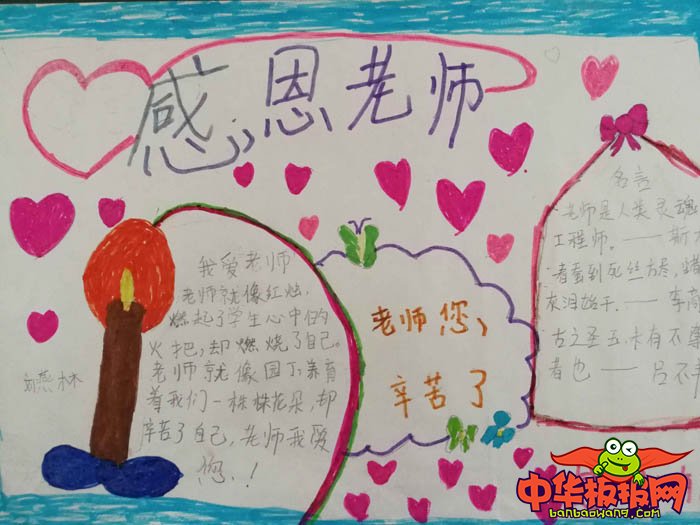 感恩老师
我爱老师
老师就像红烛,
燃起了学生心中的
火把,却燃烧了自己。
老师就像园丁养育
着我们一株株花朵,却
辛苦了自己,老师我爱
您!
刘燕林
老师您
辛苦了
名言
老师是人类灵魂
工程师。——斯大
春蚕到死丝方尽,蜡
灰泪始干。——李商
古之圣王未有不尊
者也——吕不韦
中华板报网
banbaowang.com